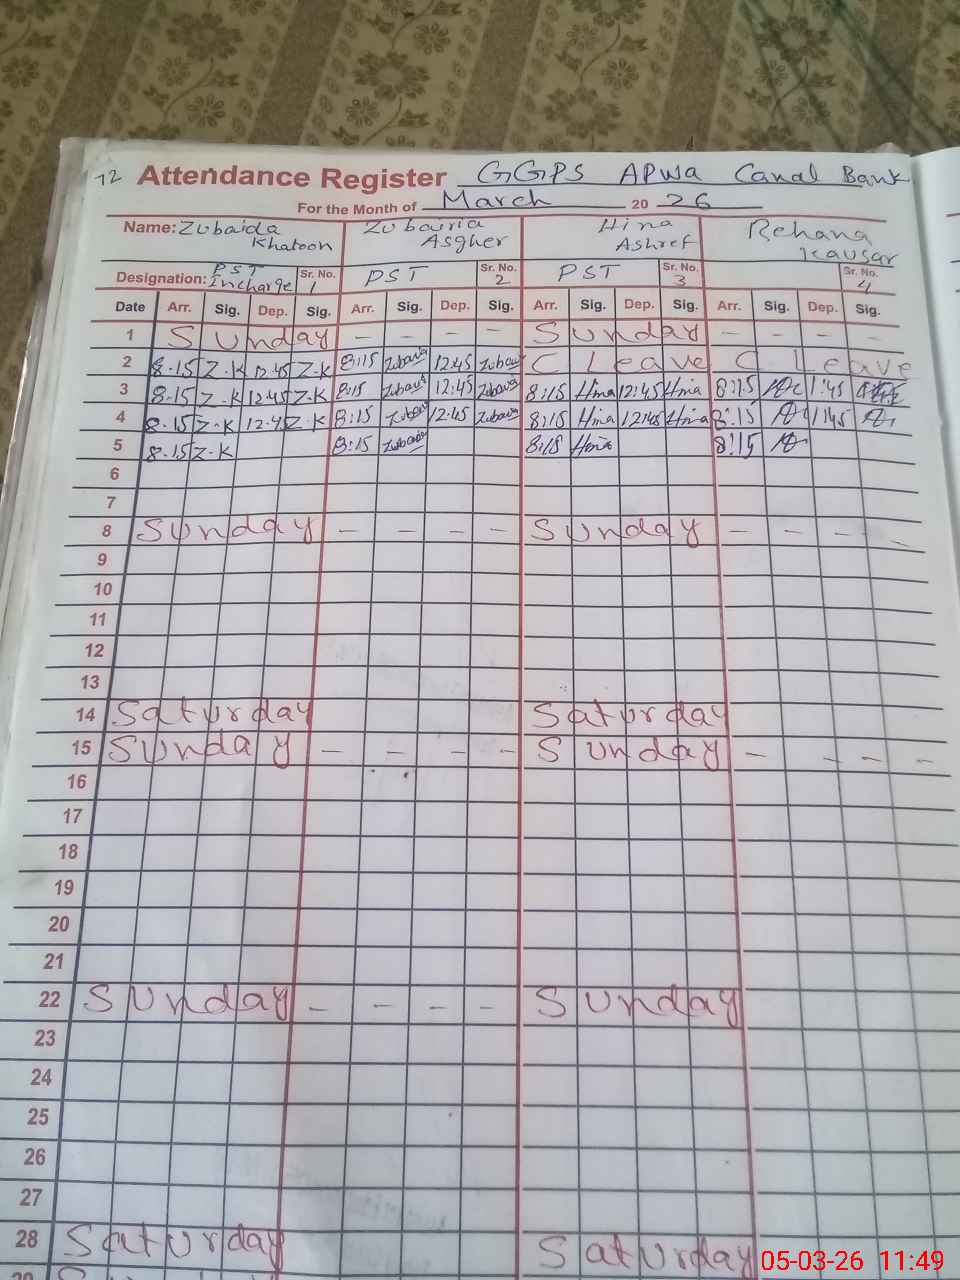 72 Attendance Register GGPS APWA Canal Bank
For the Month of March 20 26
Name: Zubaida Khatoon Zubairia Asgher Hina Ashref Rehana Kausar
Designation: PST Incharge Sr. No. 1 PST Sr. No. 2 PST Sr. No. 3 Sr. No. 4
Date Arr. Sig. Dep. Sig. Arr. Sig. Dep. Sig. Arr. Sig. Dep. Sig. Arr. Sig. Dep. Sig.
1 Sunday - - - - Sunday - - - -
2 8.15 Z.K 12.45 Z.K 8:15 12:45 C Leave C Leave
3 8.15 Z.K 12.45 Z.K 8:15 12:45 8:15 Hina 12:45 Hina 8:15 1:45
4 8.15 Z.K 12.45 Z.K 8:15 12:45 8:15 Hina 12:45 Hina 8:15 1:45
5 8.15 Z.K 8:15 8:15 Hina 8:15
6
7
8 Sunday - - - - Sunday - - - -
9
10
11
12
13
14 Saturday Saturday
15 Sunday - - - - Sunday - - - -
16
17
18
19
20
21
22 Sunday - - - - Sunday
23
24
25
26
27
28 Saturday Saturday
05-03-26 11:49